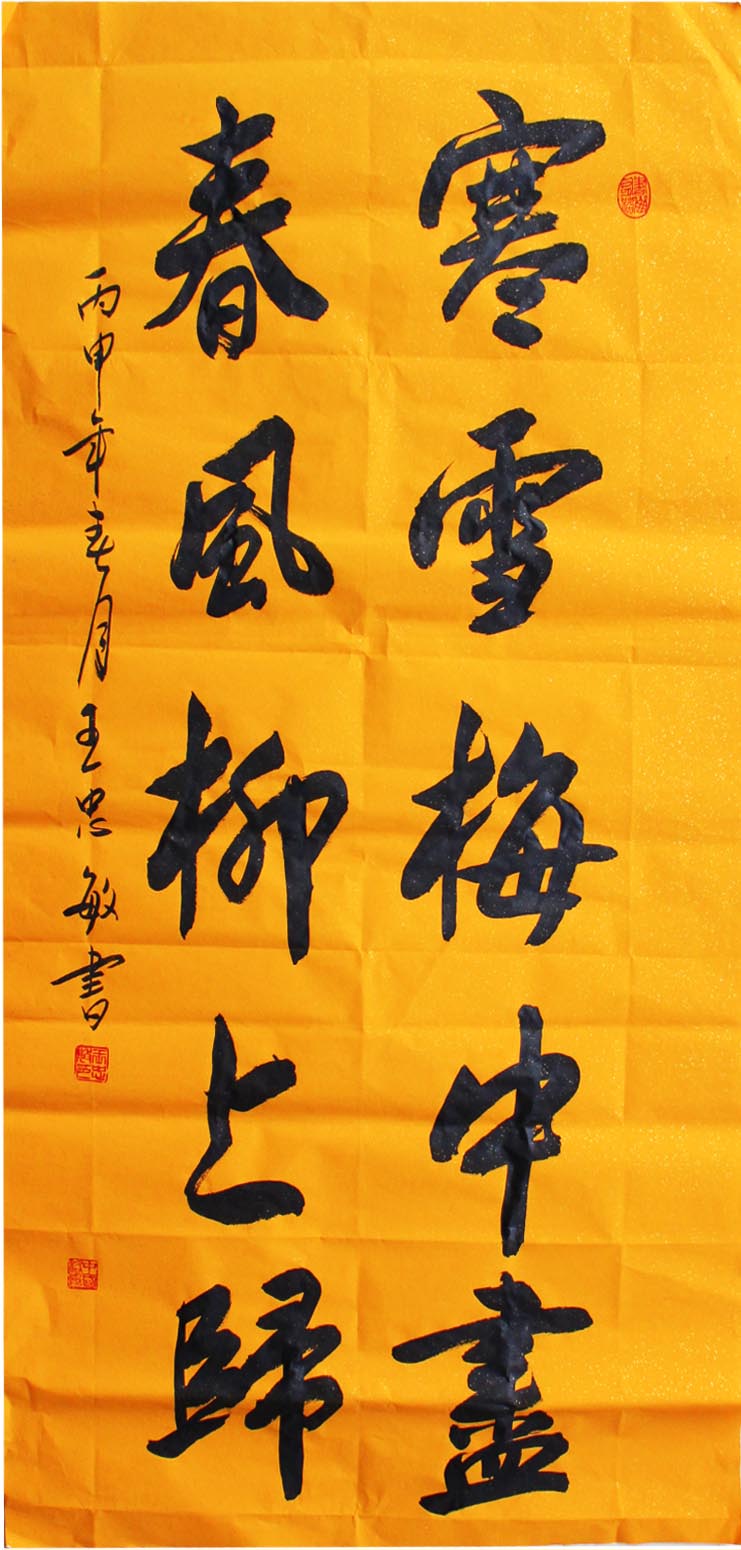 寒雪梅中盡
春風柳上歸
丙申年春月王忠敏書